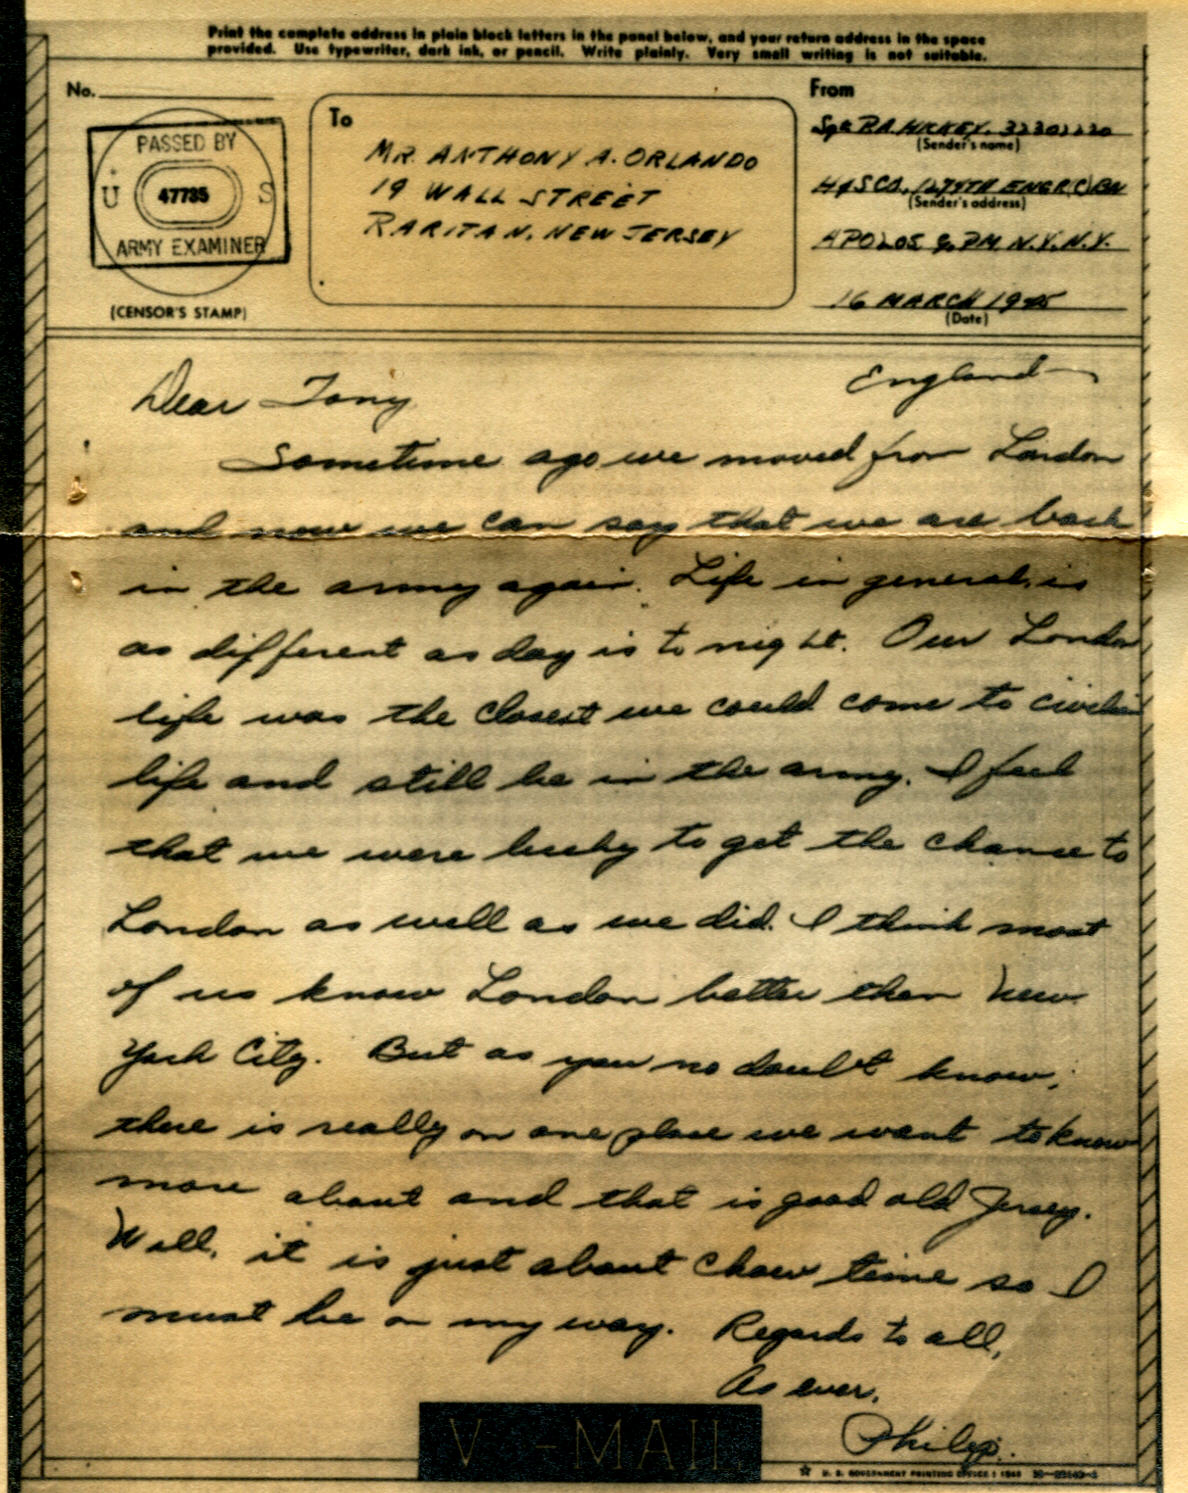 Print the complete address in plain block letters in the panel below, and your return address in the space
provided. Use typewriter, dark ink, or pencil. Write plainly. Very small writing is not suitable.
No.
PASSED BY
U 47785 S
ARMY EXAMINER
(CENSOR'S STAMP)
To
MR. ANTHONY A. ORLANDO
19 WALL STREET
RARITAN, NEW JERSEY
From
Sgt
(Sender's name)
ENGR (C) BN
(Sender's address)
PM N.Y. N.Y.
16 MARCH 1945
(Date)
England
Dear Tony
Sometime ago we moved from London
and now we can say that we are back
in the army again. Life in general, is
as different as day is to night. Our London
life was the closest we could come to
life and still be in the army. I feel
that we were lucky to get the chance to
London as well as we did. I think most
of us know London better then New
York City. But as you no doubt know,
there is really on one place we want to know
more about and that is good old Jersey.
Well, it is just about chow time so I
must be on my way. Regards to all,
As ever,
Philip.
V - MAIL
U. S. GOVERNMENT PRINTING OFFICE :